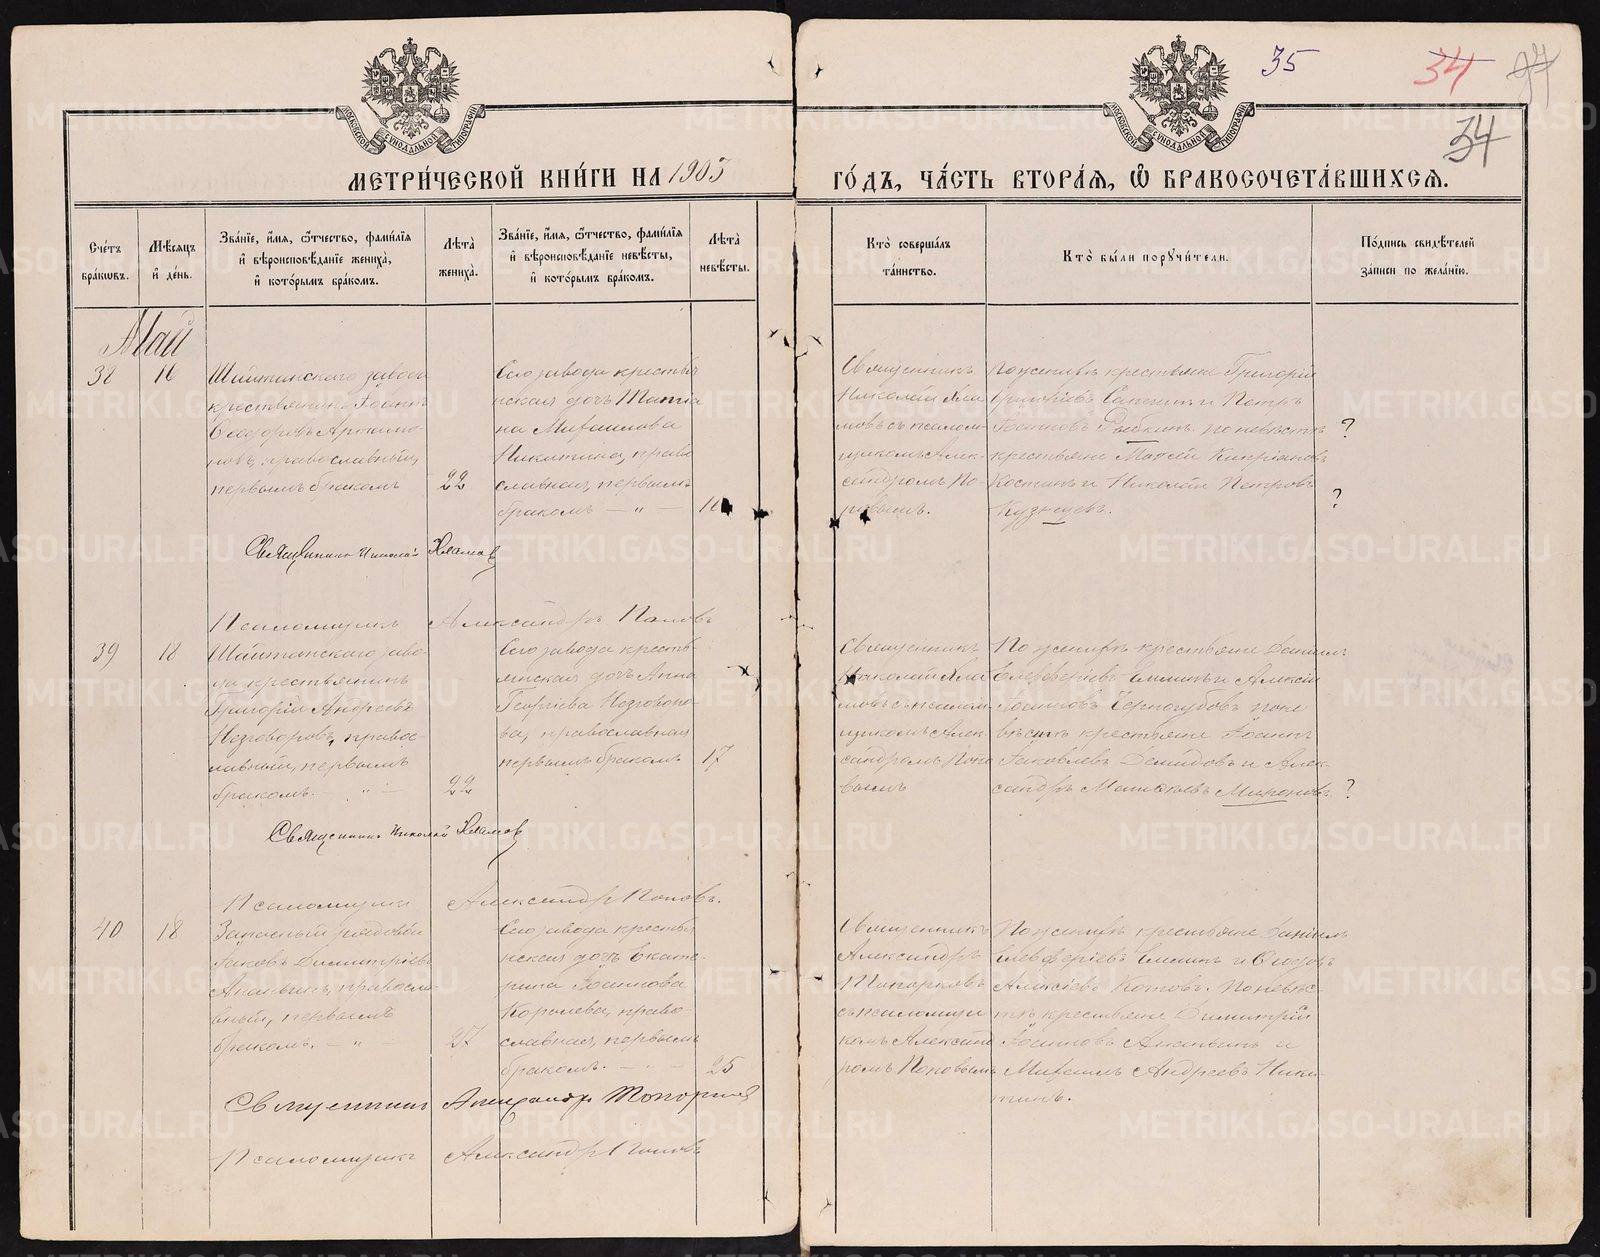 35 34 34
МЕТРИ́ЧЕСКОЙ КНИ́ГИ НА 1903 ГО́ДЪ, ЧА́СТЬ ВТОРА́Я, Ѡ БРАКОСОЧЕТА́ВШИХСЯ.
Сче́тъ бра́кѡвъ.
Мѣ́сяцъ и де́нь.
Зва́нїе, и́мя, ѻ҆́тчество, фами́лїя и вѣроисповѣ́данїе жениха̀, и кото́рымъ бра́комъ.
Лѣ́та̀ жениха̀.
Зва́нїе, и́мя, ѻ҆́тчество, фами́лїя и вѣроисповѣ́данїе невѣ́сты, и кото́рымъ бра́комъ.
Лѣ́та̀ невѣ́сты.
Кто̀ соверша́лъ та́инство.
Кто̀ бы́ли порꙋчи́тели.
По́дпись свидѣ́телей за́писи по жела́нїю.
Май
38
16
Шайтанскаго завода
крестьянинъ Іоаннъ
Ѳеодоровъ Артамо-
новъ, православный,
первымъ бракомъ
22
Сего завода крестья
нская дочь Татіа
на Михаилова
Никитина, право
славная, первымъ
бракомъ — „ —
Священникъ
Николай Хла
мовъ съ псалом-
щикомъ Алек-
сандромъ По-
повымъ.
По женихѣ крестьяне Григорій
Григоріевъ Сапегинъ и Петръ
Іоанновъ Рыбкинъ. по невѣстѣ ?
крестьяне Матѳій Кипріановъ
Костинъ и Николай Петровъ ?
Кузнецевъ.
Священникъ Николай Хламов
Псаломщикъ Александръ Поповъ
39
18
Шайтанскаго заво-
да крестьянинъ
Григорій Андреевъ
Незговоровъ, правос-
лавный, первымъ
бракомъ. — „ —
22
Сего завода кресть-
янская дочь Анна
Георгіева Незговоро-
ва, православная
первымъ бракомъ
17
Священникъ
Николай Хла
мовъ съ псалом
щикомъ Алек-
сандромъ Попо
вымъ
По женихѣ крестьяне Даніилъ
Елевферіевъ Елшинъ и Алексій
Іоанновъ Черногубовъ по не
вѣстѣ крестьяне Іоаннъ
Іаковлевъ Демидовъ и Алек-
сандръ Матѳіевъ Мироновъ ?
Священникъ Николай Хламов
Псаломщикъ Александръ Поповъ.
40
18
Запасный рядовой
Іаковъ Димитріевъ
Ананьинъ, правосла-
вный, первымъ
бракомъ. — „ —
27
Сего завода крестья
нская дочь Екате-
рина Іоаннова
Королева, право-
славная, первымъ
бракомъ. — „ —
25
Священникъ
Александръ
Топорковъ
съ псаломщи
комъ Александ
ромъ Поповымъ
По женихѣ крестьяне Даніилъ
Елевферіевъ Елшинъ и Ѳеодоръ
Алексіевъ Котовъ. По невѣс-
тѣ крестьяне Димитрій
Іоанновъ Ананьинъ и
Михаилъ Андреевъ Ники-
тинъ.
Священникъ Александръ Топорков
Псаломщикъ Александръ Поповъ
METRIKI.GASO-URAL.RU